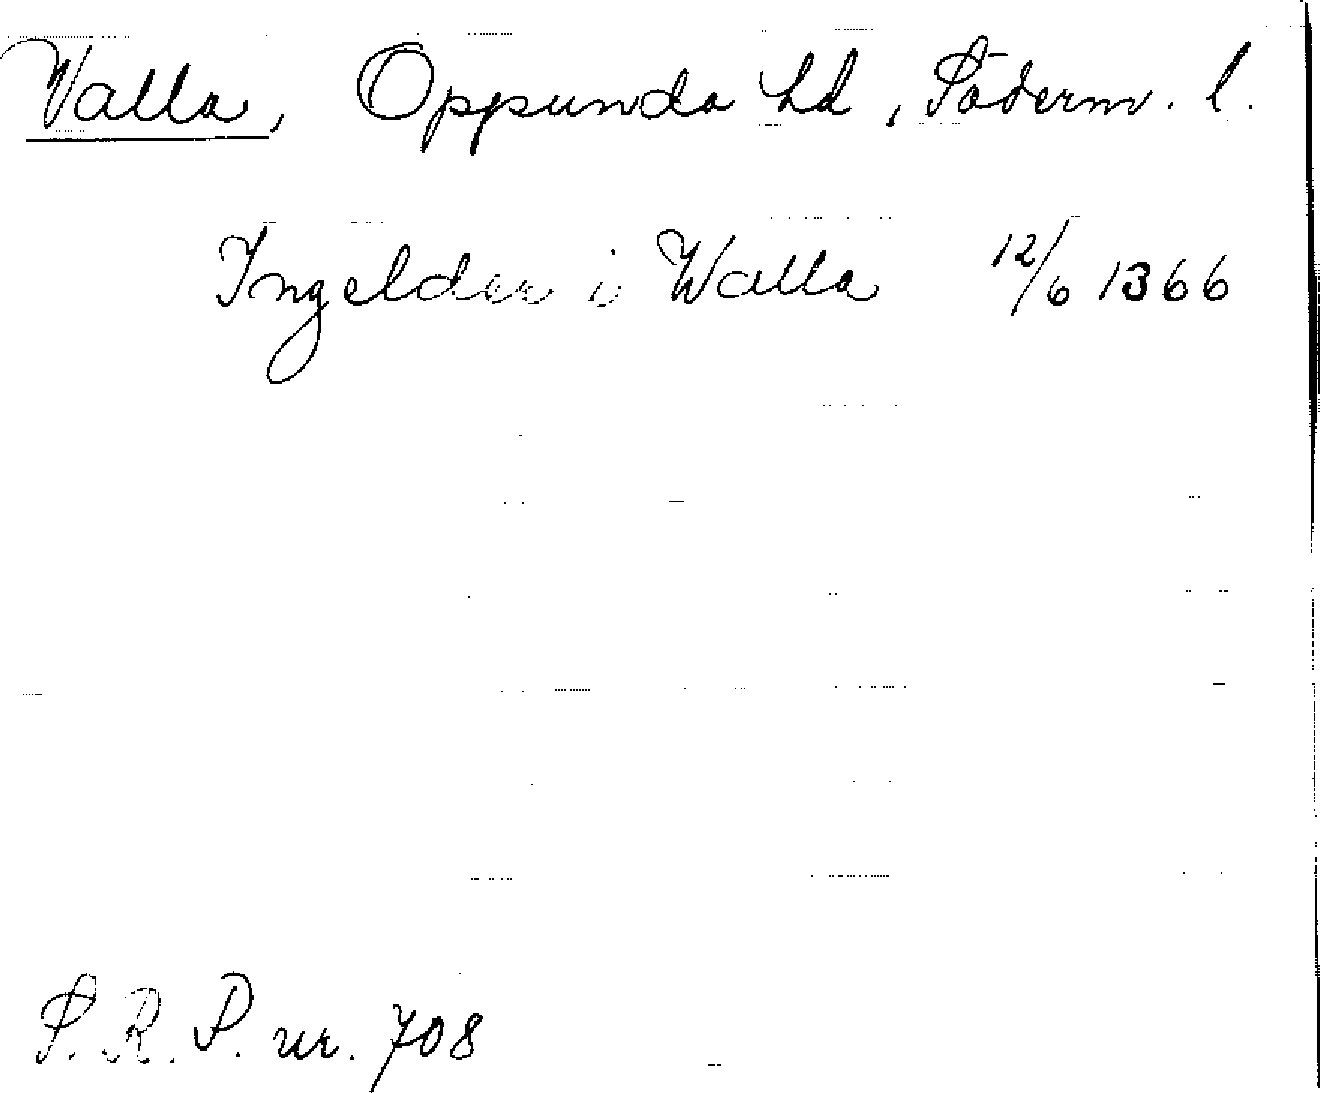 Valla, Oppunda hd, Söderm. l.
Ingelder i Walla 12/6 1366
S. R. P. nr. 708